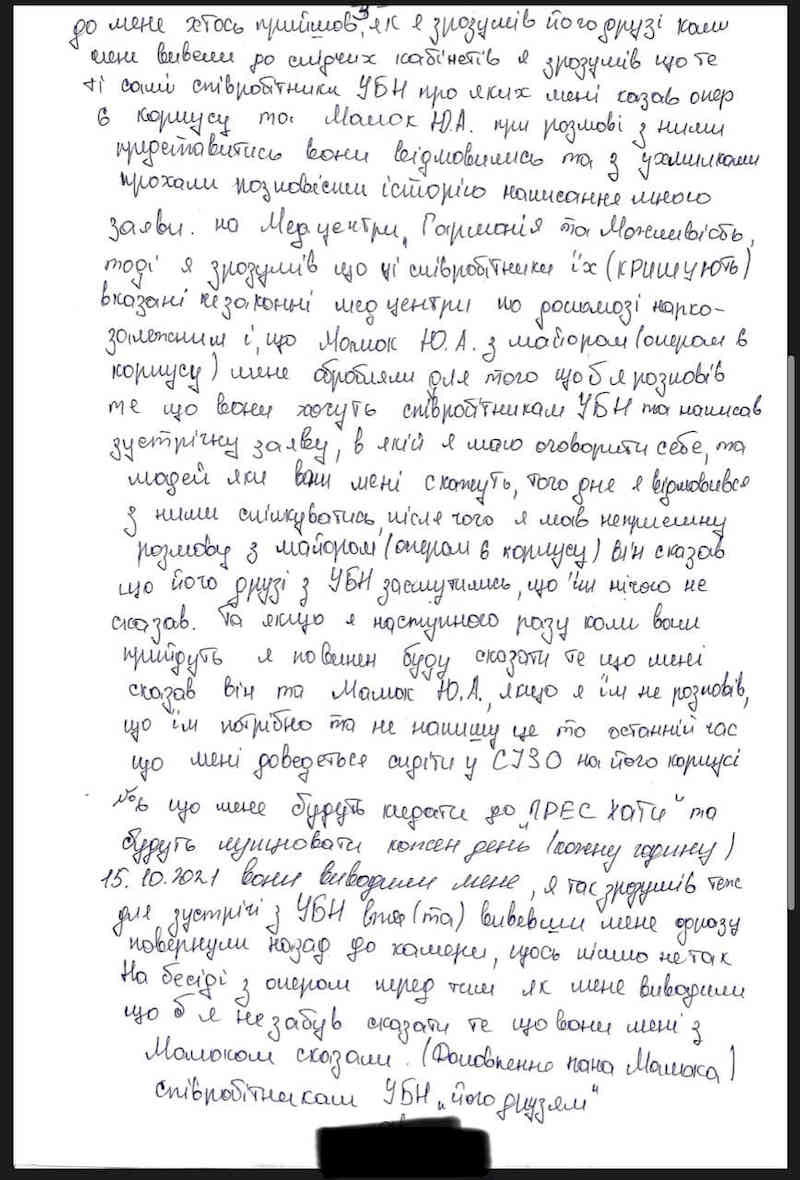 3
до мене хтось прийшов, як я зрозумів його друзі коли
мене вивели до слідчих кабінетів я зрозумів що те
ті самі співробітники УБН про яких мені казав опер
в корпусу та Мамок Ю.А. при розмові з ними
представитись вони відмовились та з ухмилками
прохали розповісти історію написання мною
заяви. на Медцентри „Гармонія та Можливість,
тоді я зрозумів що ці співробітники їх (КРИШУЮТЬ)
вказані незаконні медцентри по допомозі нарко-
залежним і, що Мамок Ю.А. з майором (опером в
корпусу) мене обробляли для того щоб я розповів
те що вони хочуть співробітникам УБН та написав
зустрічну заяву, в якій я маю оговорити себе, та
людей яки вони мені скажуть, того дня я відмовився
з ними спілкуватись, після чого я мав неприємну
розмову з майором (опером в корпусу) він сказав
що його друзі з УБН засмутились, що їм нічого не
сказав. Та якщо я наступного разу коли вони
прийдуть я повинен буду сказати те що мені
сказав він та Мамок Ю.А., якщо я їм не розповів,
що їм потрібно та не напишу це то останній час
що мені доведеться сидіти у СІЗО на його корпусі
що мене будуть кидати до „ПРЕС ХАТИ" та
будуть лупцювати кожен день (кожну годину)
15.10.2021 вони виводили мене, я так зрозумів теж
для зустрічі з УБН (та) вивевши мене одразу
повернули назад до камери, щось пішло не так
На бесіді з опером перед тим як мене виводили
що б я не забув сказати те що вони мені з
Мамоком сказали. (Доповненно пана Мамока)
співробітникам УБН „його друзям"